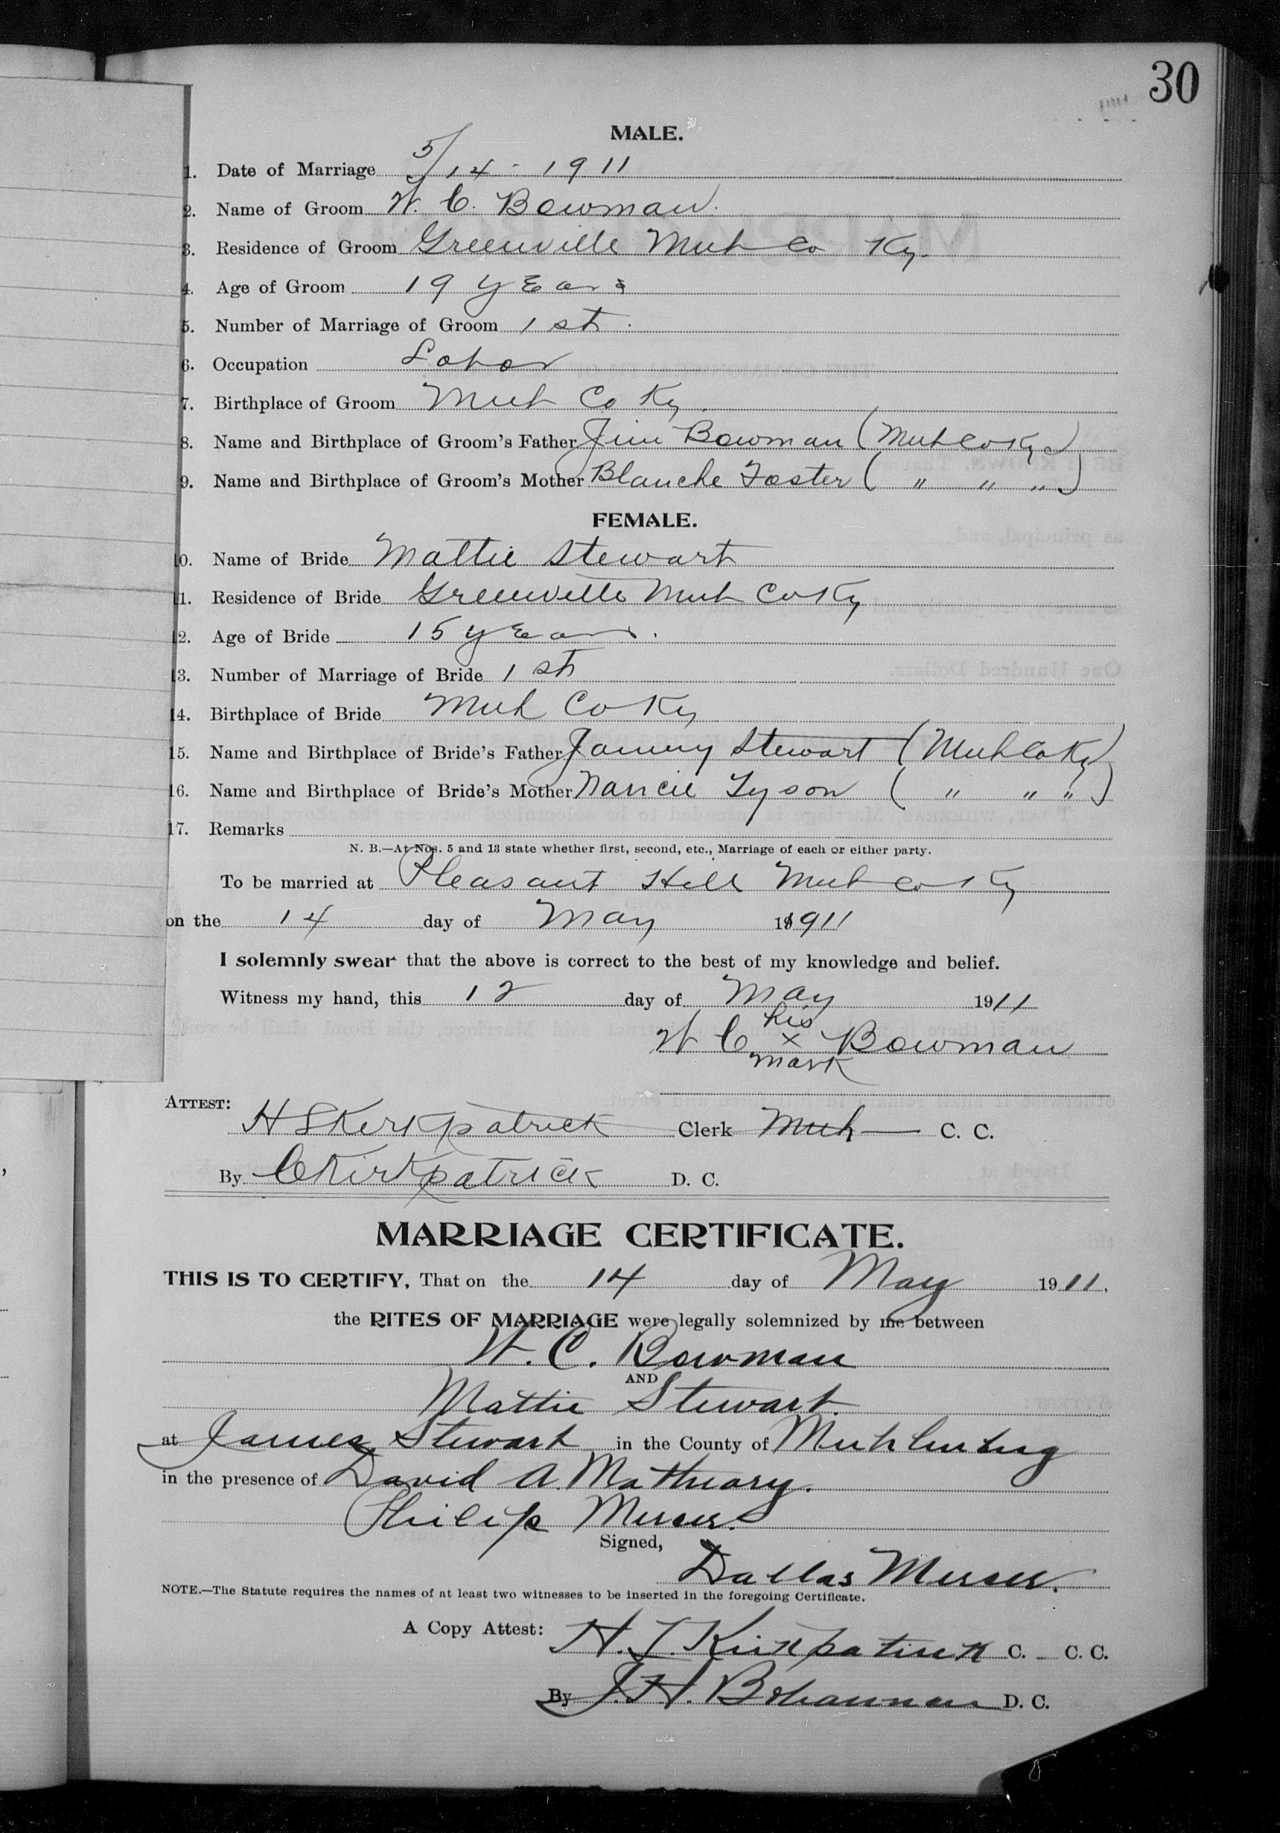 30
MALE.
1. Date of Marriage 5/14 - 1911
2. Name of Groom W. C. Bowman.
3. Residence of Groom Greenville Muh Co Ky.
4. Age of Groom 19 years
5. Number of Marriage of Groom 1st.
6. Occupation Labor
7. Birthplace of Groom Muh Co Ky.
8. Name and Birthplace of Groom's Father Jim Bowman (Muh Co Ky)
9. Name and Birthplace of Groom's Mother Blanche Foster ( " " " )
FEMALE.
10. Name of Bride Mattie Stewart
11. Residence of Bride Greenville Muh Co Ky
12. Age of Bride 15 years.
13. Number of Marriage of Bride 1st
14. Birthplace of Bride Muh Co Ky
15. Name and Birthplace of Bride's Father Jammy Stewart (Muh Co Ky)
16. Name and Birthplace of Bride's Mother Nancie Tyson ( " " " )
17. Remarks
N. B.—At Nos. 5 and 13 state whether first, second, etc., Marriage of each or either party.
To be married at Pleasant Hill Muh Co Ky
on the 14 day of May 1911
I solemnly swear that the above is correct to the best of my knowledge and belief.
Witness my hand, this 12 day of May 1911
his
W C x Bowman
mark
ATTEST:
H S Kirkpatrick Clerk Muh C. C.
By C Kirkpatrick D. C.
MARRIAGE CERTIFICATE.
THIS IS TO CERTIFY, That on the 14 day of May 1911.
the RITES OF MARRIAGE were legally solemnized by me between
W. C. Bowman
AND
Mattie Stewart.
at James Stewart in the County of Muhlenberg
in the presence of David A.
Philip
Signed,
Dallas
NOTE.—The Statute requires the names of at least two witnesses to be inserted in the foregoing Certificate.
A Copy Attest: H. T. Kirkpatrick C. C. C.
By J. H. Bohannan D. C.